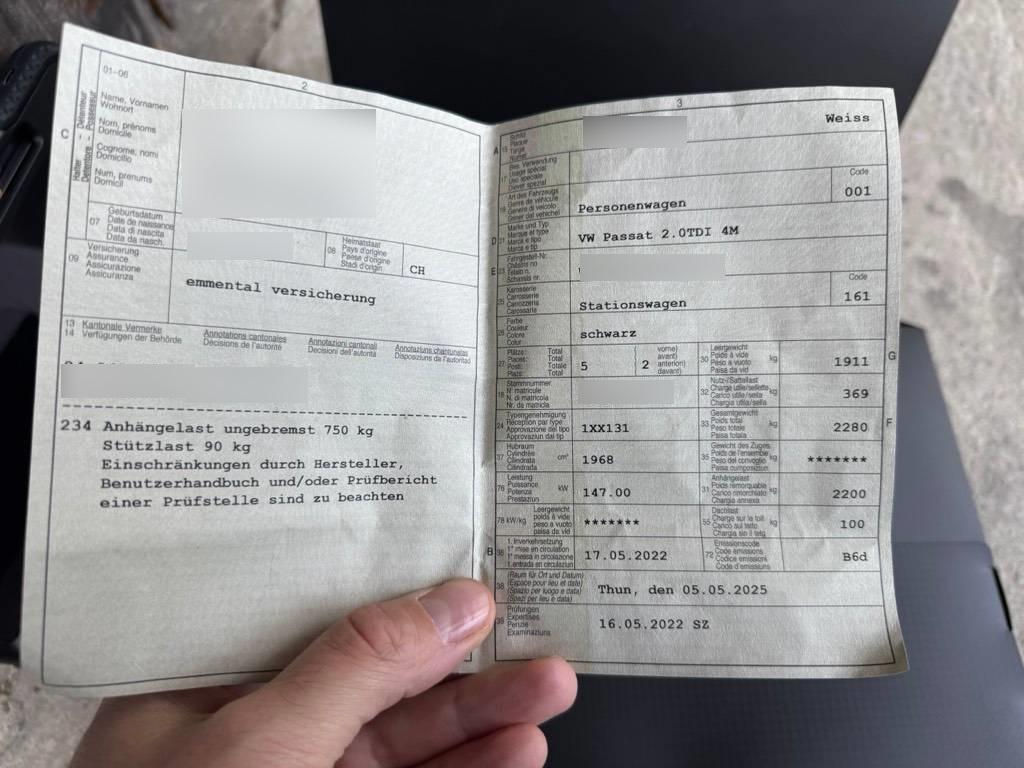 2
01-06
C
Halter - Détenteur
Detentore - Possessur
Name, Vornamen
Wohnort
Nom, prénoms
Domicile
Cognome, nomi
Domicilio
Num, prenums
Domicil
07
Geburtsdatum
Date de naissance
Data di nascita
Data da nasch.
08
Heimatstaat
Pays d'origine
Paese d'origine
Stadi d'origin
CH
09
Versicherung
Assurance
Assicurazione
Assicuranza
emmental versicherung
13 Kantonale Vermerke
14 Verfügungen der Behörde
Annotations cantonales
Décisions de l'autorité
Annotazioni cantonali
Decisioni dell'autorità
Annotaziuns chantunalas
Disposiziuns da l'autoritad
234 Anhängelast ungebremst 750 kg
Stützlast 90 kg
Einschränkungen durch Hersteller,
Benutzerhandbuch und/oder Prüfbericht
einer Prüfstelle sind zu beachten
3
A 15
Schild
Plaque
Targa
Numer
Weiss
17
Bes. Verwendung
Usage spécial
Uso speciale
Diever spezial
19
Art des Fahrzeugs
Genre de véhicule
Genere di veicolo
Gener dal vehichel
Personenwagen
Code
001
D 21
Marke und Typ
Marque et type
Marca e tipo
Marca e tip
VW Passat 2.0TDI 4M
E 23
Fahrgestell-Nr.
Châssis no
Telaio n.
Schassis nr.
25
Karosserie
Carrosserie
Carrozzeria
Carossaria
Stationswagen
Code
161
26
Farbe
Couleur
Colore
Colur
schwarz
27
Plätze: Total
Places: Total
Posti: Totale
Plazs: Total
5
2
vorne)
avant)
anteriori)
davant)
G
30
Leergewicht
Poids à vide
Peso a vuoto
Paisa da vid
kg
1911
18
Stammnummer
N° matricule
N. di matricola
Nr. da matricla
32
Nutz-/Sattellast
Charge utile/sellette
Carico utile/sella
Chargia utila/sella
kg
369
24
Typengenehmigung
Réception par type
Approvazione del tipo
Approvaziun dal tip
1XX131
F
33
Gesamtgewicht
Poids total
Peso totale
Paisa totala
kg
2280
37
Hubraum
Cylindrée
Cilindrata
Cilindrada
cm³
1968
35
Gewicht des Zuges
Poids de l'ensemble
Peso del convoglio
Paisa cumposiziun
kg
*******
76
Leistung
Puissance
Potenza
Prestaziun
kW
147.00
31
Anhängelast
Poids remorquable
Carico rimorchiato
Chargia annexa
kg
2200
78 kW/kg
Leergewicht
poids à vide
peso a vuoto
paisa da vid
*******
55
Dachlast
Charge sur le toit
Carico sul tetto
Chargia sin il tetg
kg
100
B 36
1. Inverkehrsetzung
1re mise en circulation
1a messa in circolazione
1. entrada en circulaziun
17.05.2022
72
Emissionscode
Code émissions
Codice emissioni
Code d'emissiuns
B6d
38
(Raum für Ort und Datum)
(Espace pour lieu et date)
(Spazio per luogo e data)
(Spazi per lieu e data)
Thun, den 05.05.2025
39
Prüfungen
Expertises
Perizie
Examinaziuns
16.05.2022 SZ